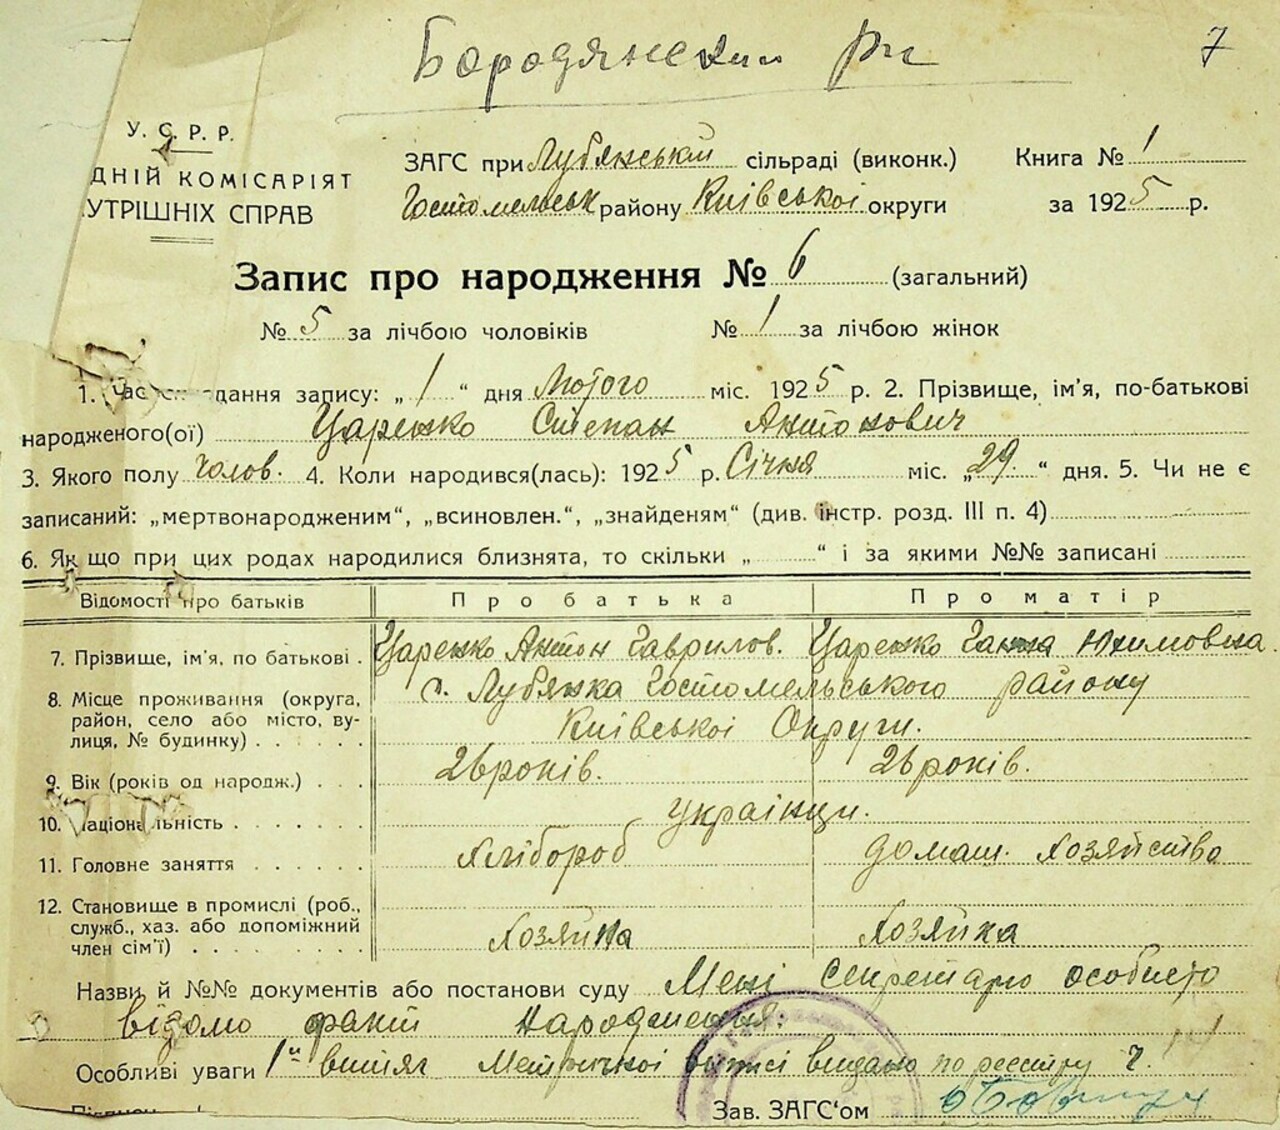 Бородянский р-н 7
У. С. Р. Р.
ДНІЙ КОМІСАРІЯТ
УТРІШНІХ СПРАВ
ЗАГС при Лубянській сільраді (виконк.) Книга № 1
Гостомельськ району Київської округи за 1925 р.
Запис про народження № 6 (загальний)
№ 5 за лічбою чоловіків № 1 за лічбою жінок
1. Час складання запису: „1“ дня Лютого міс. 1925 р. 2. Прізвище, ім'я, по-батькові
народженого(ої) Царенко Степан Антонович
3. Якого полу чолов. 4. Коли народився(лась): 1925 р. Січня міс. „29.“ дня. 5. Чи не є
записаний: „мертвонародженим“, „всиновлен.“, „знайденям“ (див. інстр. розд. III п. 4)
6. Як що при цих родах народилися близнята, то скільки „ “ і за якими №№ записані
Відомості про батьків Про батька Про матір
7. Прізвище, ім'я, по батькові . Царенко Антон Гаврилов. Царенко Ганна Юхимовна.
8. Місце проживання (округа, с. Лубянка Гостомельського району
район, село або місто, ву- Київської Округи.
лиця, № будинку) . . . . . .
9. Вік (років од народж.) . . . 26 років. 26 років.
10. Національність . . . . . . . українци.
11. Головне заняття . . . . . . Хлібороб домаш. хозяйство
12. Становище в промислі (роб.,
служб., хаз. або допоміжний
член сім'ї) . . . . . . . . . . Хозяйка Хозяйка
Назви й №№ документів або постанови суду Мені секретарю особисто
відомо факт народження:
Особливі уваги 1й витяг Метричної виписі видано по реєстру ч.
Зав. ЗАГС'ом